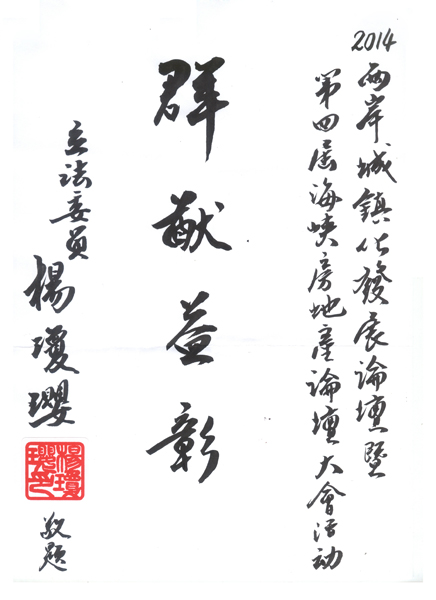 2014兩岸城鎮化發展論壇暨
第四屆海峽房地產論壇大會活动
群猷益彰
立法委員
楊瓊瓔
楊瓊瓔印
敬題